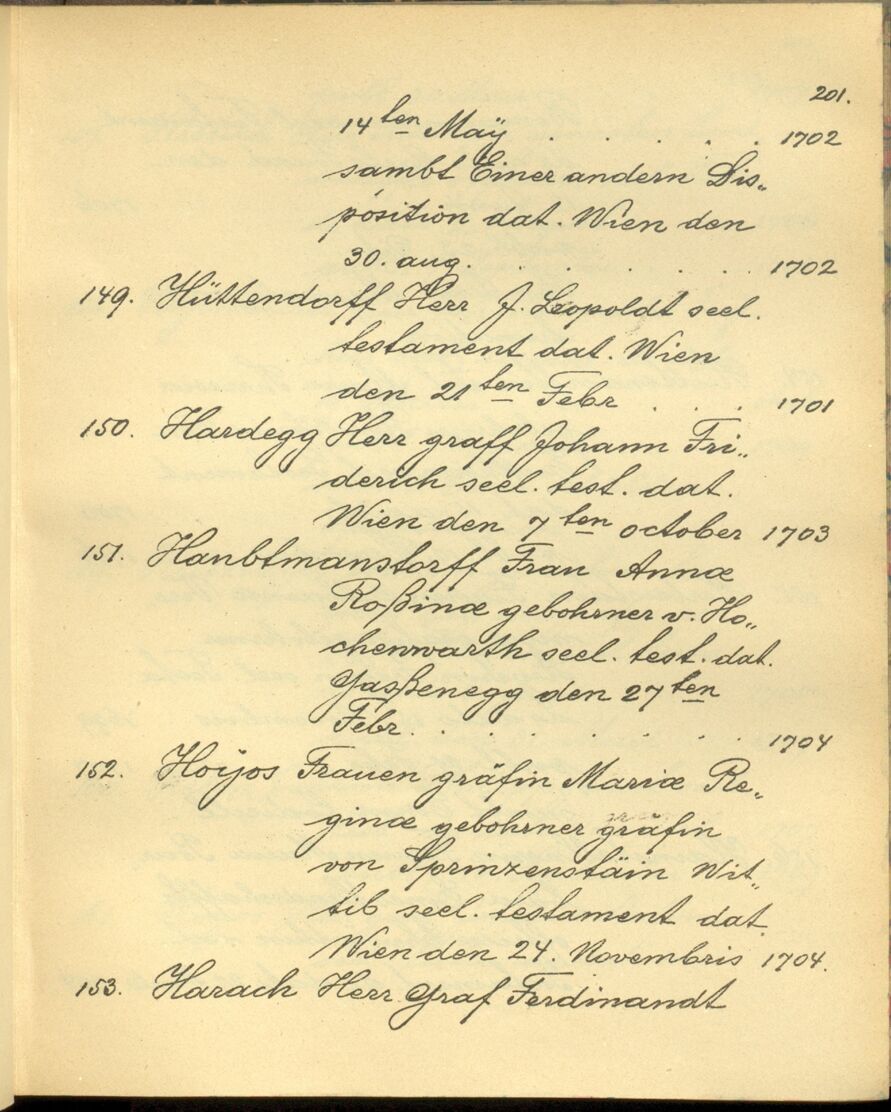 201.
14ten Maÿ . . . . . 1702
sambt Einer andern Dis„
position dat. Wien den
30. aug. . . . . . . 1702
149. Hüttendorff Herr J. Leopoldt seel.
testament dat. Wien
den 21ten Febr . . . 1701
150. Hardegg Herr graff Johann Fri„
derich seel. test. dat.
Wien den 7ten october 1703
151. Haubtmanstorff Frau Annæ
Roßinæ gebohrner v. Ho„
chenwarth seel. test. dat.
Gaßenegg den 27ten
Febr. . . . . . . 1704
152. Hoÿos Frauen gräfin Mariæ Re„
ginæ gebohrner gräfin
von Sprinzenstäin Wit„
tib seel. testament dat.
Wien den 24. Novembris 1704.
153. Harach Herr Graf Ferdinandt